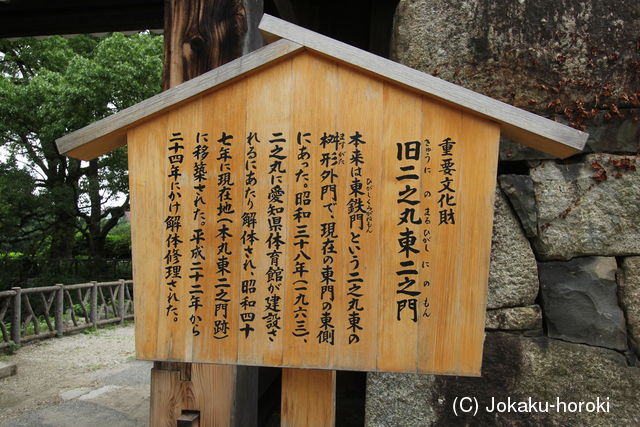 重要文化財
旧二之丸東二之門
きゅう に の まる ひがし に の もん
本来は東鉄門という二之丸東の
ひがしくろがねもん
枡形外門で、現在の東門の東側
ますがた
にあった。昭和三十八年(一九六三)、
二之丸に愛知県体育館が建設さ
れるにあたり解体され、昭和四十
七年に現在地(本丸東二之門跡)
に移築された。平成二十二年から
二十四年にかけ解体修理された。
(C) Jokaku-horoki